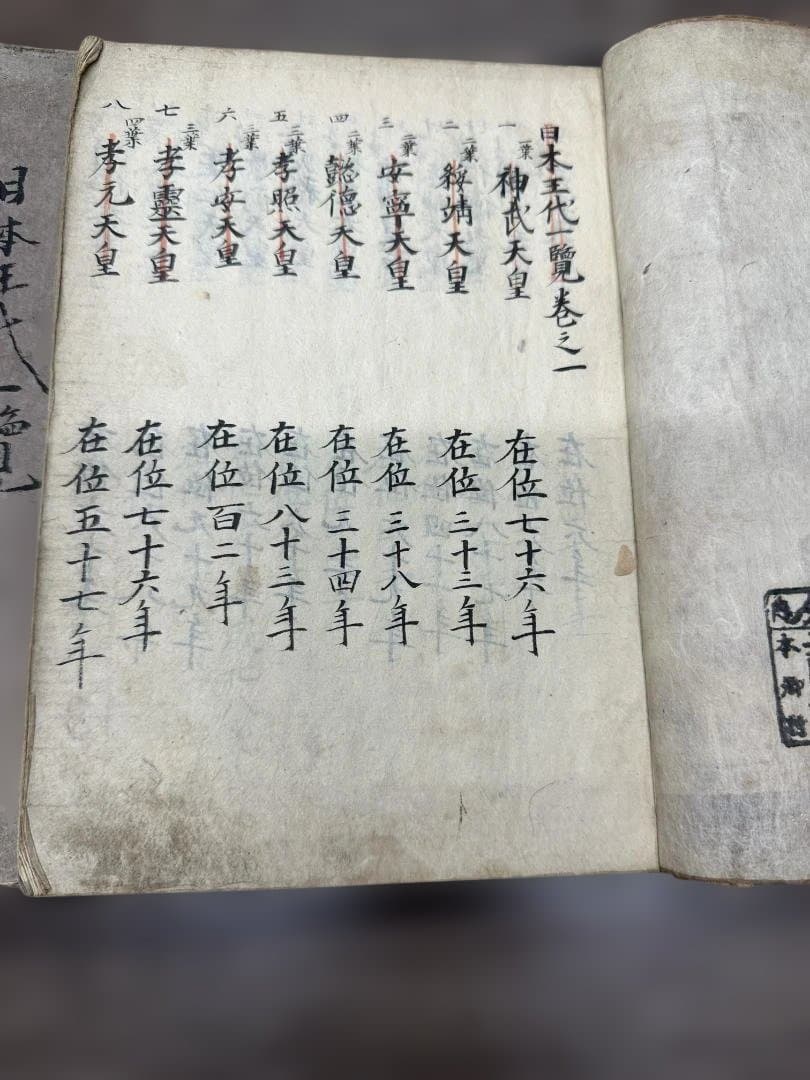 日本王代一覽卷之一
一 一葉 神武天皇 在位七十六年
二 二葉 綏靖天皇 在位三十三年
三 二葉 安寧天皇 在位三十八年
四 二葉 懿德天皇 在位三十四年
五 三葉 孝照天皇 在位八十三年
六 三葉 孝安天皇 在位百二年
七 三葉 孝靈天皇 在位七十六年
八 四葉 孝元天皇 在位五十七年
日本王代一覽